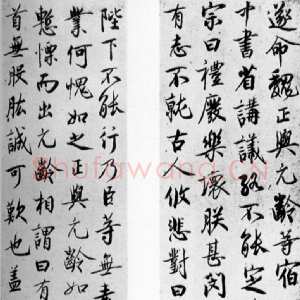 遂命魏正與元齡等宿
中書省講議終不能定
宗曰禮廢樂壞朕甚閔
有志不就古人攸悲對曰
陛下不能行乃臣等無素
業何愧如之正與元齡如
慙慄而出元齡相謂曰有
首無股肱誠可歎也蓋